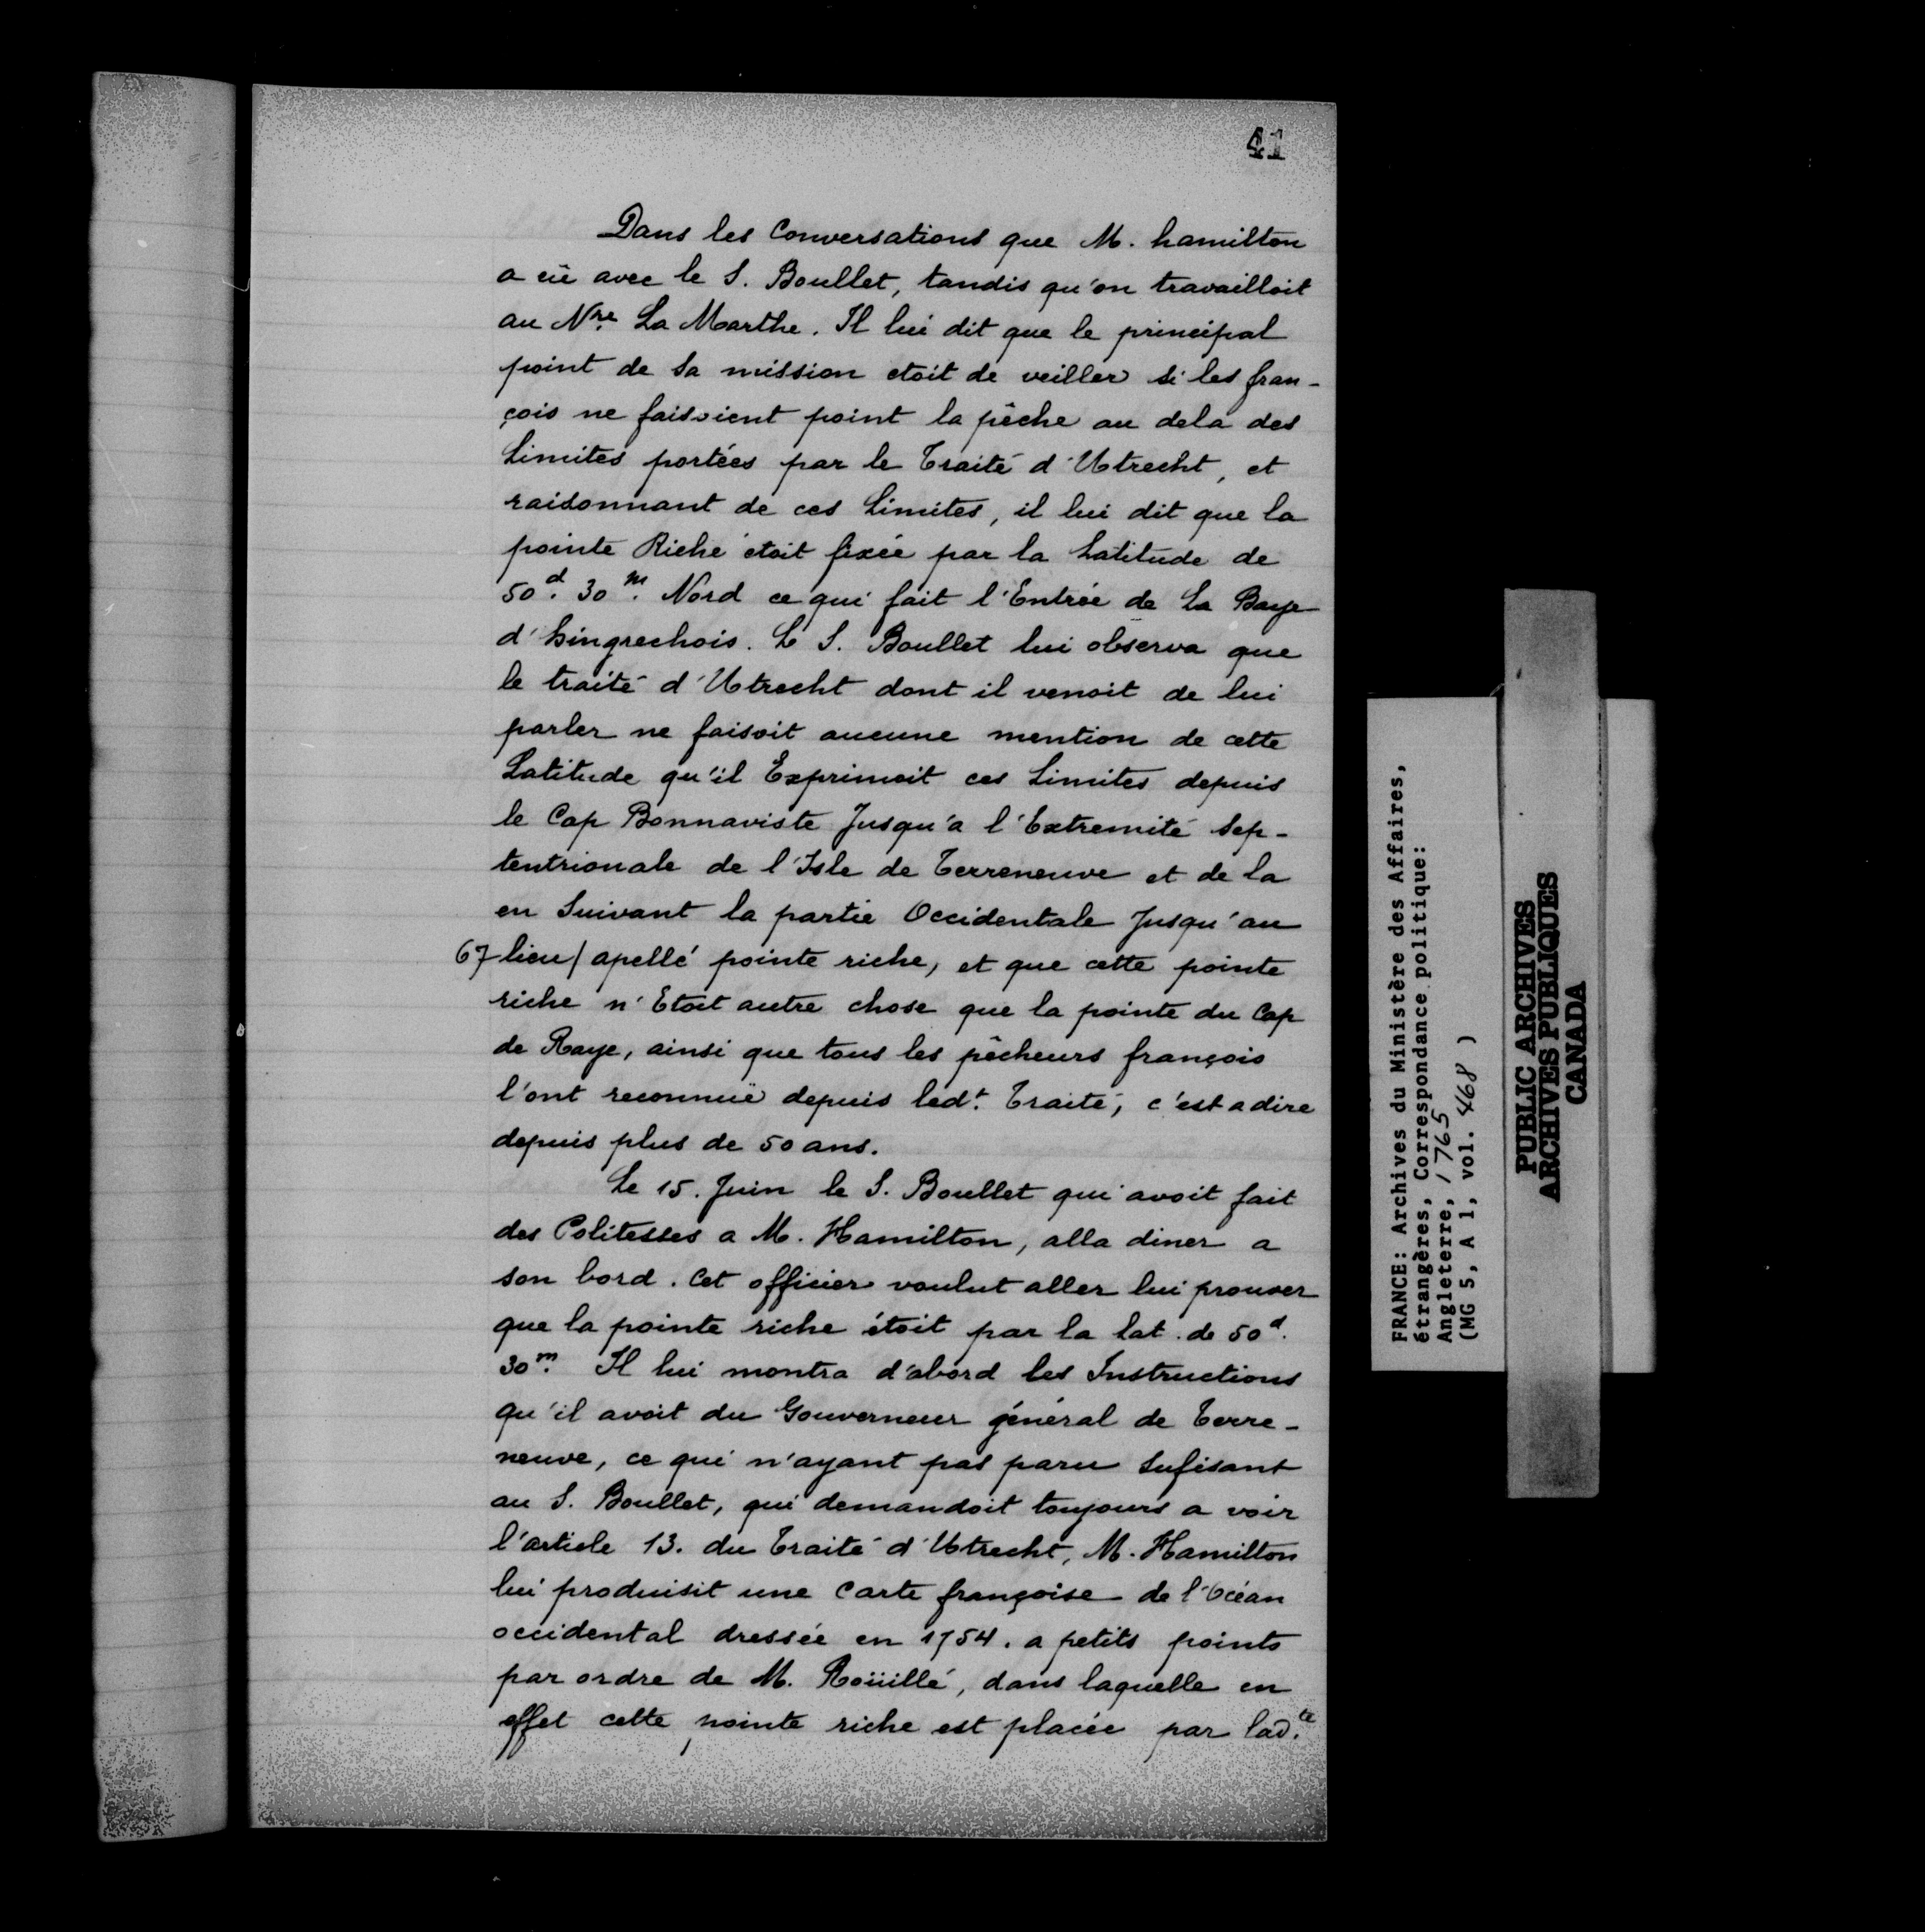 41
Dans les Conversations que M. hamilton
a eü avec le S. Boullet, tandis qu'on travailloit
au Nre. La Marthe. Il lui dit que le principal
point de sa mission etoit de veiller si les fran-
çois ne faisoient point la pêche au dela des
Limites portées par le Traité d'Utrecht, et
raisonnant de ces Limites, il lui dit que la
pointe Riche étoit fixée par la Latitude de
50d. 30m. Nord ce qui fait l'Entrée de La Baye
d'hingrechois. Le S. Boullet lui observa que
le traité d'Utrecht dont il venoit de lui
parler ne faisoit aucune mention de cette
Latitude qu'il Exprimoit ces Limites depuis
le Cap Bonnaviste Jusqu'a l'Extremité Sep-
tentrionale de l'Isle de Terreneuve et de la
en Suivant la partie Occidentale Jusqu'au
67 lieu/ apellé pointe riche, et que cette pointe
riche n'Etoit autre chose que la pointe du Cap
de Raye, ainsi que tous les pêcheurs françois
l'ont reconnuë depuis ledt. Traité, c'est a dire
depuis plus de 50 ans.
Le 15. Juin le S. Boullet qui avoit fait
des Politesses a M. Hamilton, alla diner a
son bord. Cet officier voulut aller lui prouver
que la pointe riche étoit par la lat. de 50d.
30m. Il lui montra d'abord les Instructions
qu'il avoit du Gouverneur général de Terre-
neuve, ce qui n'ayant pas paru Sufisant
au S. Boullet, qui demandoit toujours a voir
l'article 13. du Traité d'Utrecht, M. Hamilton
lui produisit une Carte françoise de l'Océan
occidental dressée en 1754. a petits points
par ordre de M. Roüillé, dans laquelle en
effet cette pointe riche est placée par lad.te
FRANCE: Archives du Ministère des Affaires,
étrangères, Correspondance politique:
Angleterre, 1765
(MG 5, A 1, vol. 468 )
PUBLIC ARCHIVES
ARCHIVES PUBLIQUES
CANADA